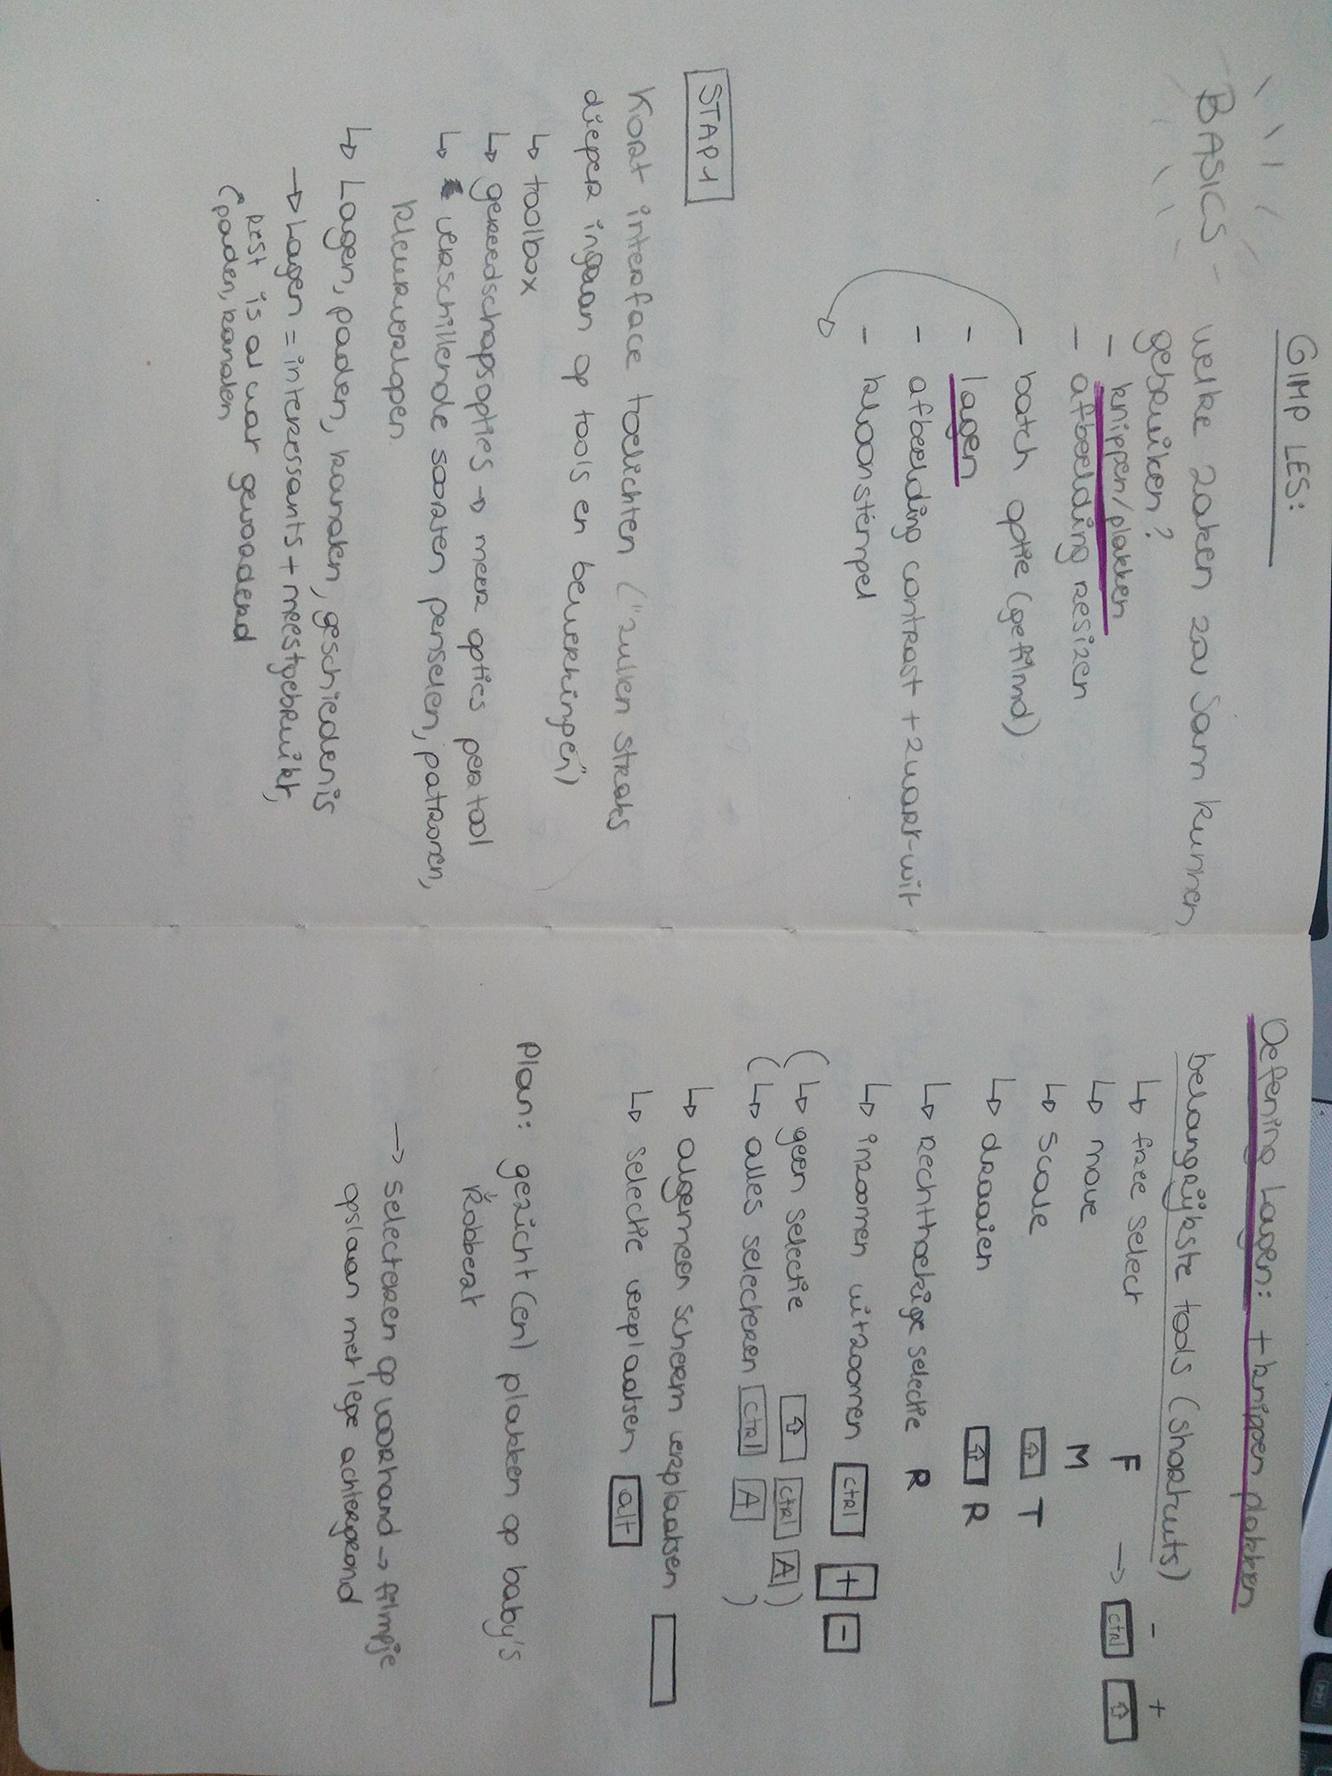 GIMP LES:
BASICS
welke zaken zou Sam kunnen
gebruiken?
- knippen/plakken
- afbeelding resizen
- batch optie (gefilmd)
- lagen
- afbeelding contrast + zwart-wit
- kloonstempel
STAP 1
Kort interface toelichten ("zullen straks
dieper ingaan op tools en bewerkingen")
↳ toolbox
↳ gereedschapsopties → meer opties per tool
↳ verschillende soorten penselen, patronen,
kleurverlopen
↳ Lagen, paden, kanalen, geschiedenis
→ Lagen = interessants + meestgebruikt,
rest is al wat gevorderd
paden, kanalen
Oefening Lagen: + knippen plakken
belangrijkste tools (shortcuts)
- +
↳ free select F → ctrl ⇧
↳ move M
↳ scale ⇧ T
↳ draaien ⇧ R
↳ Rechthoekige selectie R
↳ inzoomen uitzoomen ctrl + -
(↳ geen selectie ⇧ ctrl A)
(↳ alles selecteren ctrl A )
↳ algemeen scherm verplaatsen
↳ selectie verplaatsen alt
Plan: gezicht(en) plakken op baby's
Robbert
→ selecteren op voorhand → filmpje
opslaan met lege achtergrond